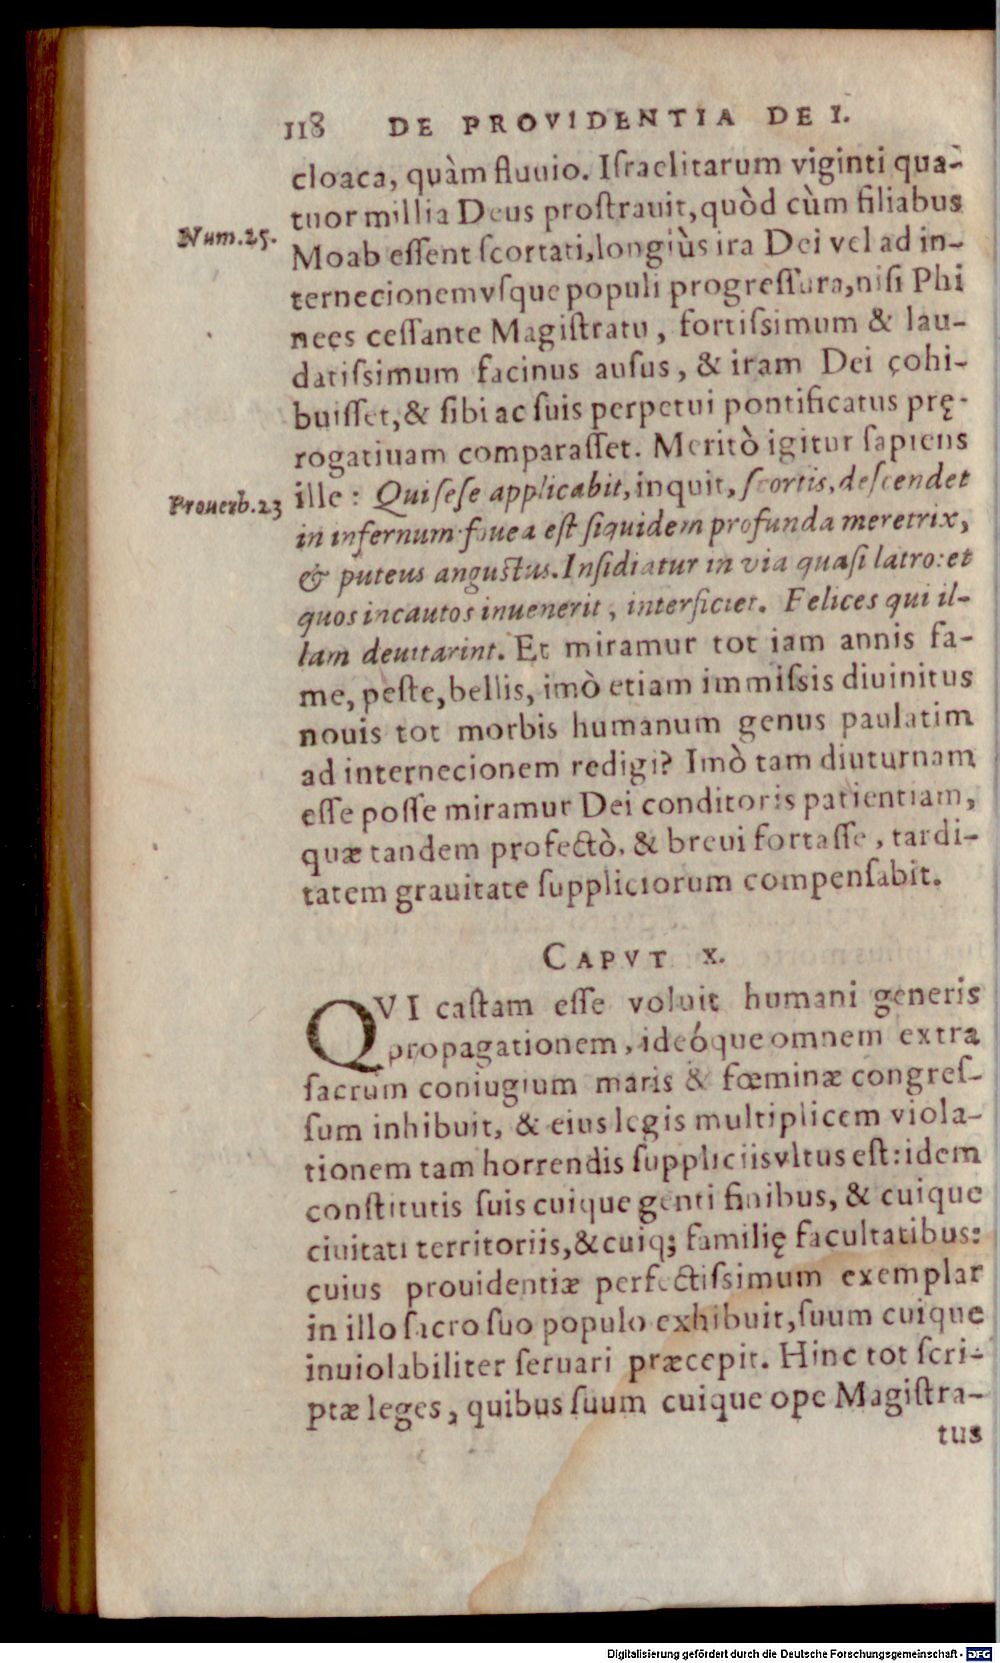 118 DE PROVIDENTIA DEI.
cloaca, quàm fluuio. Iſraelitarum viginti qua-
tuor millia Deus proſtrauit, quòd cùm filiabus
Num.25.
Moab eſſent ſcortati, longiùs ira Dei vel ad in-
ternecionem vſque populi progreſſura, niſi Phi
nees ceſſante Magiſtratu, fortiſsimum & lau-
datiſsimum facinus auſus, & iram Dei cohi-
buiſſet, & ſibi ac ſuis perpetui pontificatus prę-
rogatiuam comparaſſet. Meritò igitur ſapiens
Prouerb.23
ille: Qui ſeſe applicabit, inquit, ſcortis, deſcendet
in infernum: fouea eſt ſiquidem profunda meretrix,
& puteus anguſtus. Inſidiatur in via quaſi latro: et
quos incautos inuenerit, interficiet. Felices qui il-
lam deuitarint. Et miramur tot iam annis fa-
me, peſte, bellis, imò etiam immiſsis diuinitus
nouis tot morbis humanum genus paulatim
ad internecionem redigi? Imò tam diuturnam
eſſe poſſe miramur Dei conditoris patientiam,
quæ tandem profectò, & breui fortaſſe, tardi-
tatem grauitate ſuppliciorum compenſabit.
CAPVT X.
QVI caſtam eſſe voluit humani generis
propagationem, ideóque omnem extra
ſacrum coniugium maris & fœminæ congreſ-
ſum inhibuit, & eius legis multiplicem viola-
tionem tam horrendis ſuppliciis vltus eſt: idem
conſtitutis ſuis cuique genti finibus, & cuique
ciuitati territoriis, & cuiq; familię facultatibus:
cuius prouidentiæ perfectiſsimum exemplar
in illo ſacro ſuo populo exhibuit, ſuum cuique
inuiolabiliter ſeruari præcepit. Hinc tot ſcri-
ptæ leges, quibus ſuum cuique ope Magiſtra-
tus
Digitalisierung gefördert durch die Deutsche Forschungsgemeinschaft - DFG